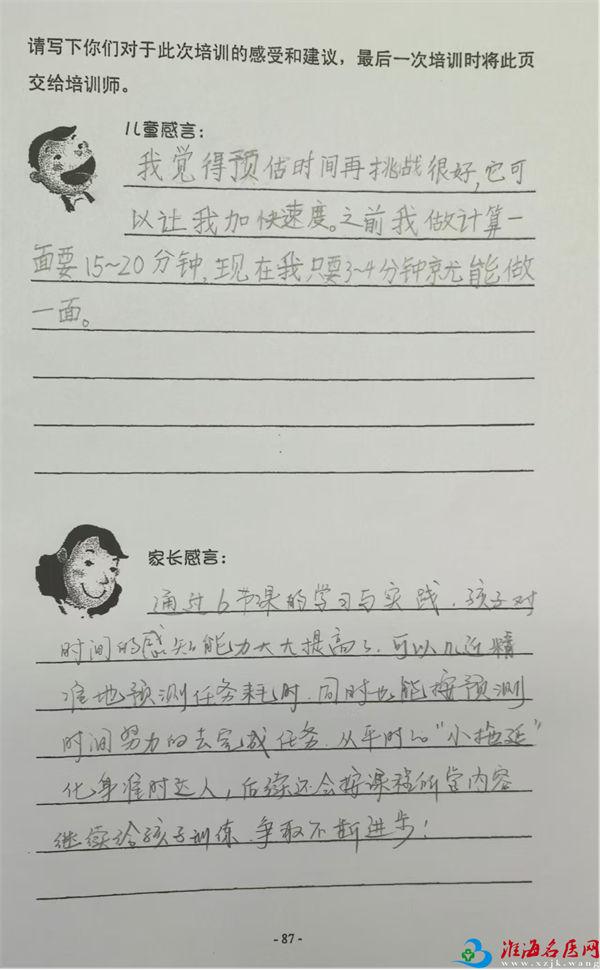 请写下你们对于此次培训的感受和建议，最后一次培训时将此页
交给培训师。
儿童感言：
我觉得预估时间再挑战很好,它可
以让我加快速度。之前我做计算一
面要15~20分钟,现在我只要3~4分钟就能做
一面。
家长感言：
通过6节课的学习与实践,孩子对
时间的感知能力大大提高了.可以几近精
准地预测任务耗时.同时也能按预测
时间努力的去完成任务.从平时的“小拖延”
化身准时达人,后续还会按课程所学内容
继续给孩子训练.争取不断进步!
- 87 -
淮海名医网
www.xzjk.wang